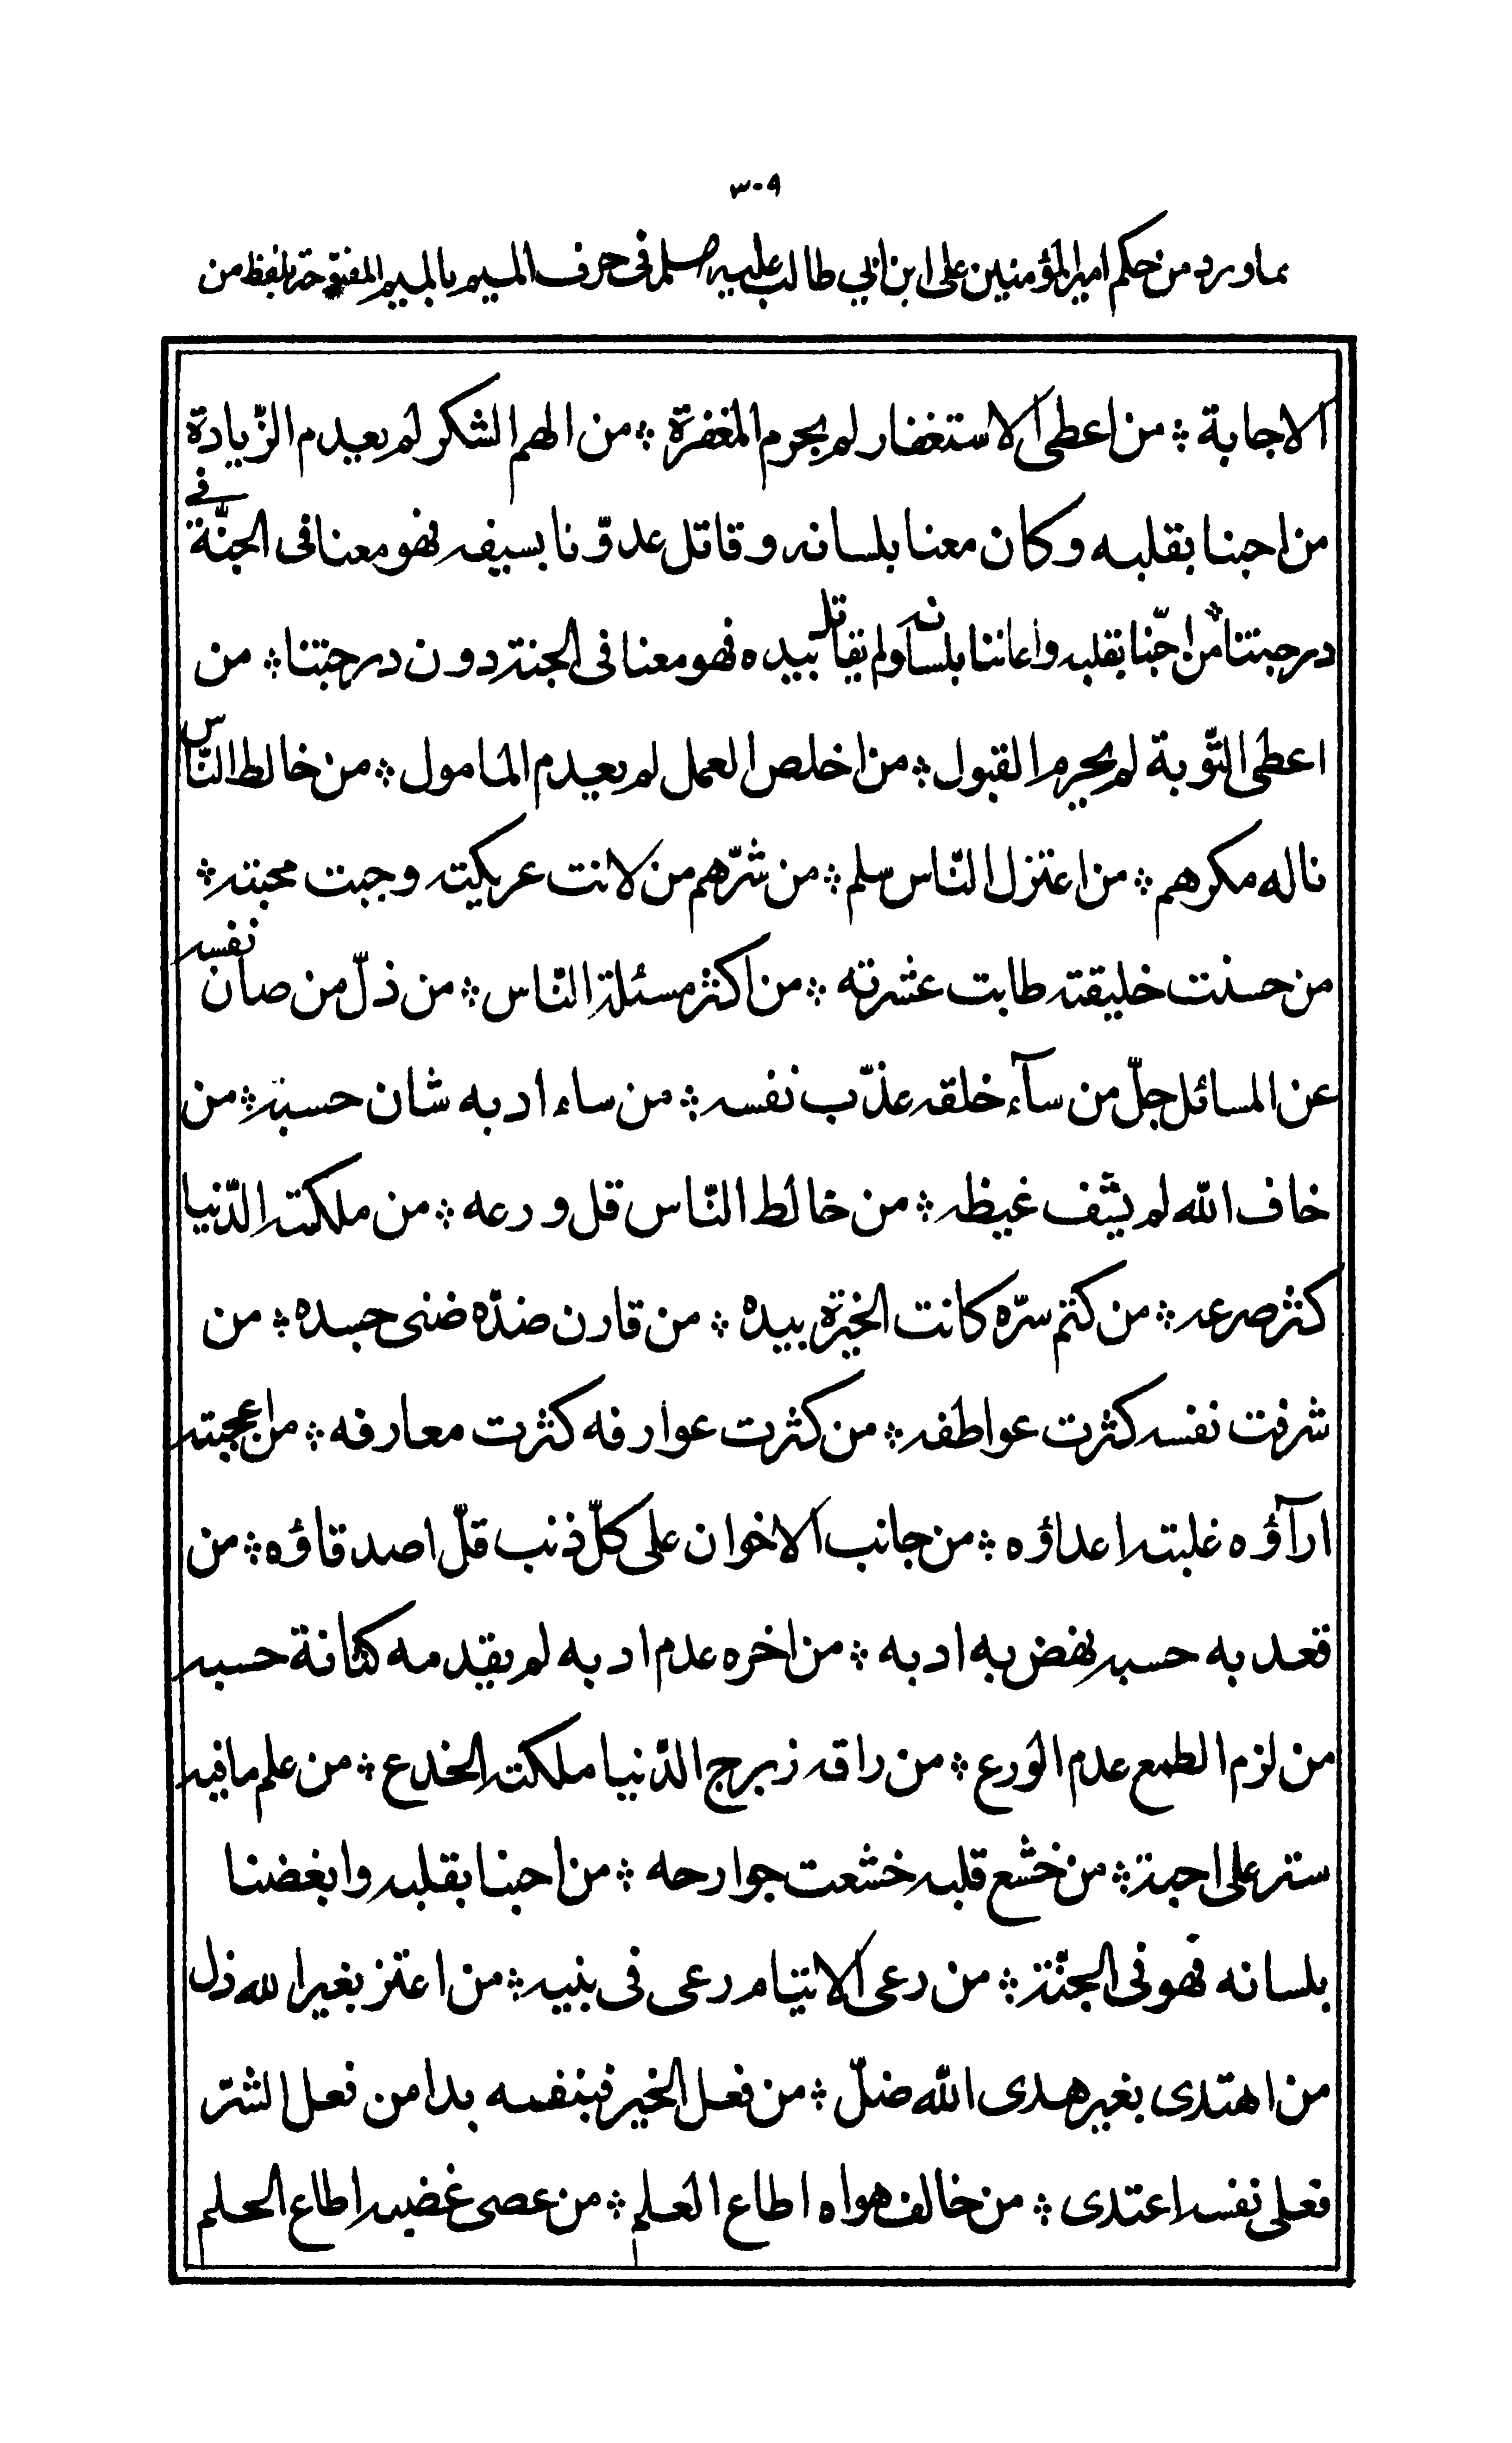 ٣٠٩
مما ورد من حكم امير المؤمنين على ابن ابي طالب عليه صلم فى حرف الميم بالميم المفتوحة بلفظ من
الاجابة ۞ من اعطى الاستغفار لم يحرم المغفرة ۞ من الهم الشكر لم يعدم الزّيادة
من احبنا بقلبه وكان معنا بلسانه وقاتل عدوّنا بسيفه فهو معنا فى الجنّة فى
درجتنا ۞ من احبّنا بقلبه واعاننا بلسانه ولم يقاتل بيده فهو معنا فى الجنة دون درجتنا ۞ من
اعطى التّوبة لم يحرم القبول ۞ من اخلص العمل لم يعدم المامول ۞ من خالط النّاس
ناله مكرهم ۞ من اعتزل النّاس سلم ۞ من شرّهم من لانت عريكته وجبت محبته ۞
من حسنت خليقته طابت عشرته ۞ من اكثر مسئلة النّاس ۞ من ذلّ من صان نفسه
عن المسائل جلّ من سآء خلقه عذّب نفسه ۞ من ساء ادبه شان حسبه ۞ من
خاف الله لم يشف غيظه ۞ من خالط النّاس قل ورعه ۞ من ملكته الدّنيا
كثر صرعه ۞ من كتم سرّه كانت الخيرة بيده ۞ من قارن ضدّه ضنى جسده ۞ من
شرفت نفسه كثرت عواطفه ۞ من كثرت عوارفه كثرت معارفه ۞ من اعجبته
ارآؤه غلبته اعداؤه ۞ من جانب الاخوان على كلّ ذنب قلّ اصدقاؤه ۞ من
قعد به حسبه نهض به ادبه ۞ من اخره عدم ادبه لم يقدمه كثانة حسبه
من لزم الطمع عدم الورع ۞ من راقه زبرج الدّنيا ملكته الخدع ۞ من علم ما فيه
ستر على احبته ۞ من خشع قلبه خشعت جوارحه ۞ من احبنا بقلبه وابغضنا
بلسانه فهو فى الجنّة ۞ من رعى الايتام رعى فى بنيه ۞ من اعتز بغير الله ذل
من اهتدى بغير هدى الله ضلّ ۞ من فعل الخير فبنفسه بدا من فعل الشرّ
فعلى نفسه اعتدى ۞ من خالف هواه اطاع العلم ۞ من عصى غضبه اطاع الحلم